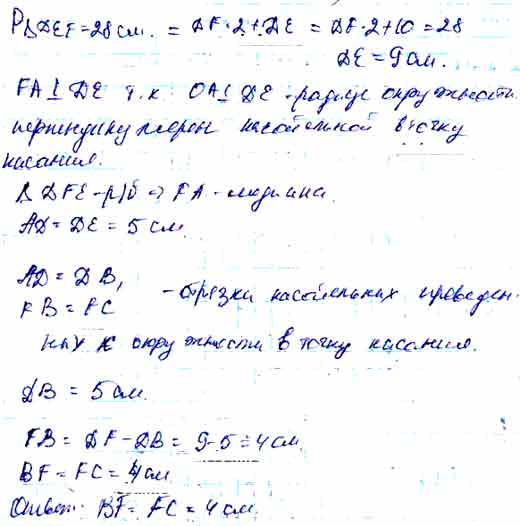 P△DEF = 28 см. = DF·2+DE = DF·2+10 = 28
DE = 9 см.
FA⊥DE т.к. OA⊥DE - радиус окружности
перпендикулярен касательной в точку
касания.
△DFE - р/б ⇒ FA - медиана.
AD = DE = 5 см.
AD = DB,
FB = FC - отрезки касательных проведен-
ных к окружности в точку касания.
DB = 5 см.
FB = DF - DB = 9-5 = 4 см.
BF = FC = 4 см
Ответ: BF = FC = 4 см.